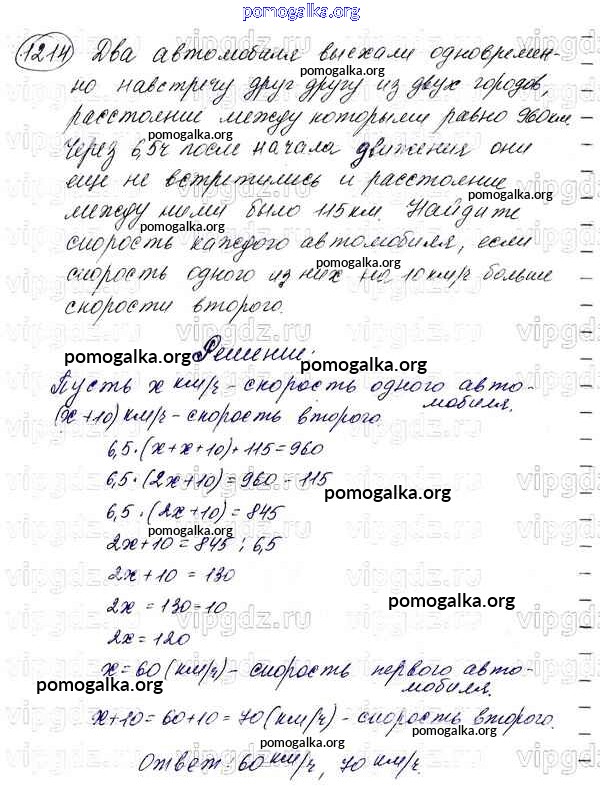 pomogalka.org
1214 Два автомобиля выехали одновремен-
но навстречу друг другу из двух городов,
расстояние между которыми равно 960 км.
Через 6,5ч после начала движения они
еще не встретились и расстояние
между ними было 115 км. Найдите
скорость каждого автомобиля, если
скорость одного из них на 10 км/ч больше
скорости второго.
Решение:
Пусть x км/ч - скорость одного авто-
мобиля.
(x+10) км/ч - скорость второго.
6,5·(x+x+10)+115=960
6,5·(2x+10)=960-115
6,5·(2x+10)=845
2x+10=845:6,5
2x+10=130
2x=130=10
2x=120
x=60 (км/ч) - скорость первого авто-
мобиля.
x+10=60+10=70 (км/ч) - скорость второго.
Ответ: 60 км/ч, 70 км/ч.
pomogalka.org
pomogalka.org
pomogalka.org
pomogalka.org
pomogalka.org
pomogalka.org
pomogalka.org
pomogalka.org
pomogalka.org
pomogalka.org
pomogalka.org
pomogalka.org
vipgdz.ru